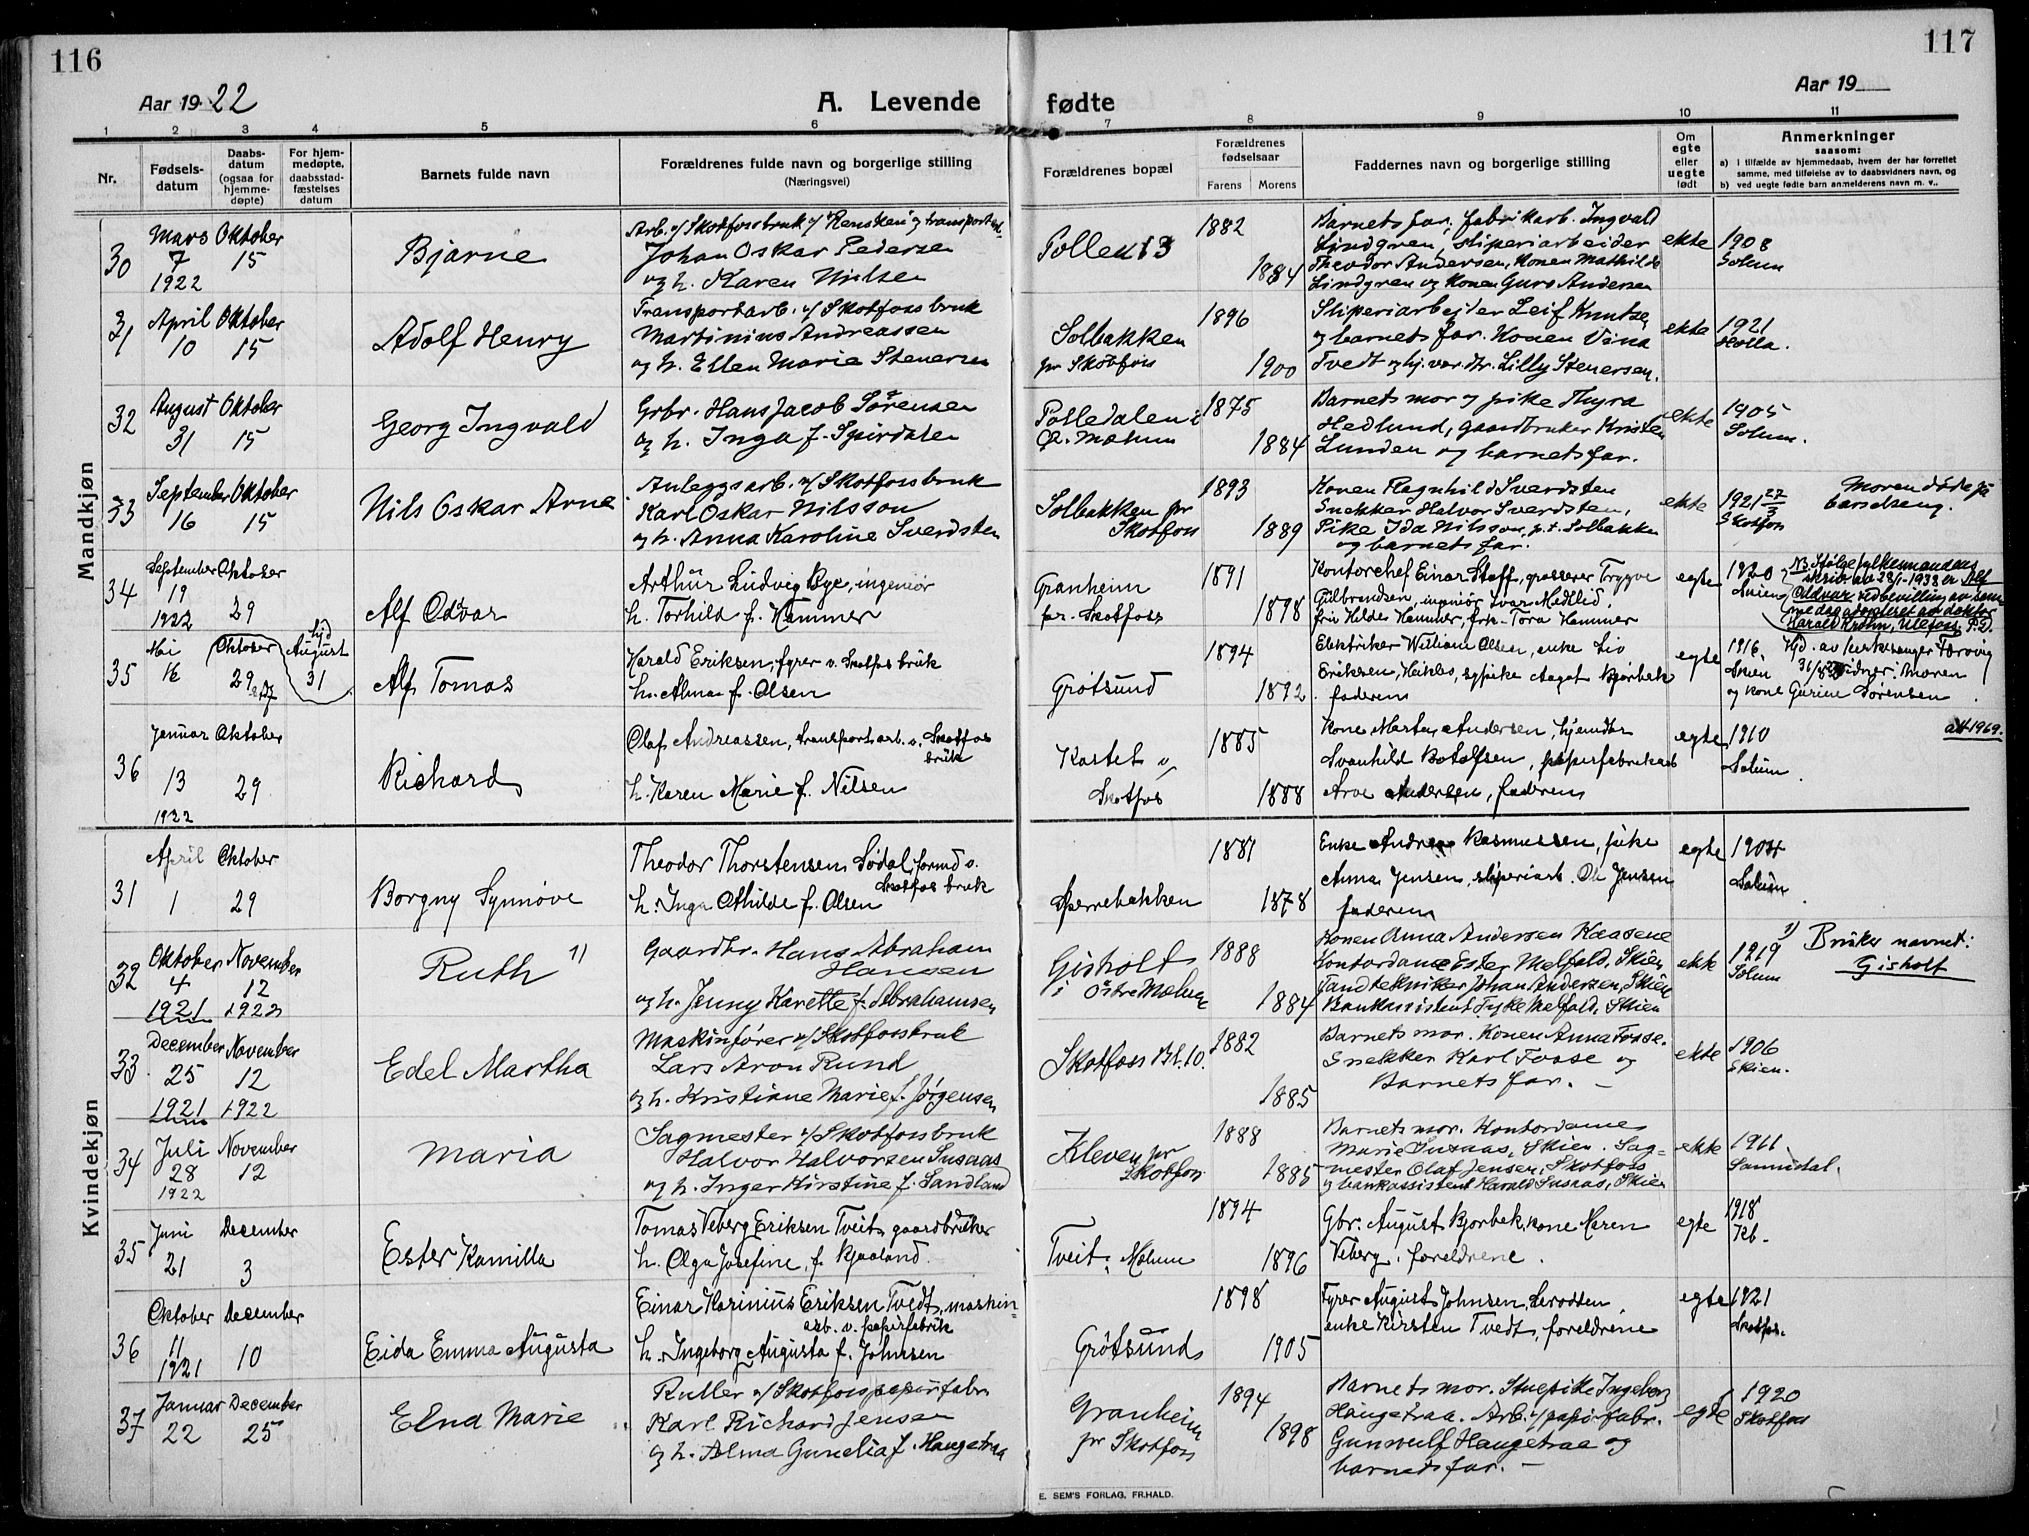 116
117
Aar 1922
A. Levende fødte
Aar 19
1 2 3 4 5 6 7 8 9 10 11
Nr.
Fødsels-datum
Daabs-datum (ogsaa for hjemme-døpte)
For hjem-medøpte, daabsstad-fæstelses datum
Barnets fulde navn
Forældrenes fulde navn og borgerlige stilling
(Næringsvei)
Forældrenes bopæl
Forældrenes fødselsaar
Farens Morens
Faddernes navn og borgerlige stilling
Om egte eller uegte født
Anmerkninger
saasom:
a) i tilfælde av hjemmedaab, hvem der har forrettet
samme, med tilføielse av to daabsvidners navn, og
b) ved uegte fødte barn anmelderens navn m. v..
Mandkjøn
30 Mars 7 1922 Oktober 15
Bjarne
Arb. v/ Skotfossbruk v/ "Rensken" og transportarb.
Johan Oskar Pedersen
og h. Karen Nielsen
Pollen 13
1882
1884
Barnets far, fabrikarb. Ingvald
Lindgren, sliperiarbeider
Theodor Andersen, Konen Mathilde
Lindgren og Konen Guro Andersen
ekte
1908
Solum
31 April 10 Oktober 15
Adolf Henry
Transportarb. v/ Skotfossbruk
Martinius Andreassen
og h. Ellen Marie Stenersen
Solbakken
pr Skotfoss
1896
1900
Sliperiarbeider Leif Knutsen
og barnets far. Konen Vina
Tvedt og hj.vær. dtr. Lilly Stenersen.
ekte
1921
Holla.
32 August 31 Oktober 15
Georg Ingvald
Grbr. Hans Jacob Sørensen
og h. Inga f. Spirdalen
Polledalen i
Ø. Mælum
1875
1884
Barnets mor og pike Thyra
Hedlund, gaardbruker Kristen
Lunden og barnets far.
ekte
1905
Solum.
33 September 16 Oktober 15
Nils Oskar Arne
Anleggsarb. v/ Skotfossbruk
Karl Oskar Nilsson
og h. Anna Karoline Sverdsten
Solbakken pr
Skotfoss
1893
1889
Konen Ragnhild Sverdsten
Snekker Halvor Sverdsten,
Pike Ida Nilsson, p.t. Solbakken
og barnets far.
ekte
1921 27/3
Skotfoss
Moren døde på
barselseng.
34 September 19 1922 Oktober 29
Alf Odvar
Arthur Ludvig Bye, ingeniør
h. Torhild f. Hammer
Granheim
pr. Skotfoss
1891
1898
Kontorchef Einar Staff, grosserer Trygve
Gulbrandsen, ingeniør Ivar Medlid,
fru Hilda Hammer, frk. Tora Hammer
egte
1920
Skien
NB Ifølge fylkesmandens
skriv av 28/1-1933 er Alf
Oddvar ved bevilling av sam-
me dag adopteret av doktor
Harald Krohn, Ulefoss. P.D.
35 Mai 16 Oktober 29 stdf August 31
Alf Tomas
Harald Eriksen, fyrer v. Skotfos bruk
h. Alma f. Olsen
Grøtsund
1894
1892
Elektriker William Olsen, enke Liv
Eriksen, Heivles, sypike Aagot Bjørbek
faderen
egte
1916
Skien
Hjd. av kirkesanger Færøvig
31/8 22 Vidner: Moren
og kone Gurine Sørensen
36 Januar 13 1922 Oktober 29
Richard
Olaf Andreassen, transportarb. v. Skotfos
bruk
h. Karen Marie f. Nilsen
Kastet v/
Skotfos
1885
1888
Kone Marten Andersen, hjemdtr
Svanhild Botolfsen, papirfabrikarb
Arve Andersen, faderen
egte
1910
Solum.
att 1969.
Kvindekjøn
31 April 1 Oktober 29
Borgny Synnøve
Theodor Thorstensen Sødal, formd v.
Skotfos bruk
h. Inga Othilde f. Olsen
Sperrebakken
1881
1878
Enke Andrea Rasmussen, pike
Anna Jensen, sliperiarb. Ole Jensen
faderen
egte
1904
Solum
32 Oktober 4 1921 November 12 1922
Ruth 1)
Gaardbr. Hans Abraham
Hansen
og h. Jenny Karette f. Abrahamsen
Gisholt
i Østre Mælum
1888
1884
Konen Anna Andersen Kaasene
Kontordame Ester Melfald, Skien
Tandtekniker Johan Andersen, Skien
Bankassistent Tykke Melfald, Skien
ekte
1919
Solum
1) Bruker navnet:
Gisholt
33 December 25 1921 November 12 1922
Edel Martha
Maskinfører v/ Skotfossbruk
Lars Aron Rund
og h. Kristiane Marie f. Jørgensen
Skotfoss Bl. 10.
1882
1885
Barnets mor. Konen Anna Fosse.
Snekker Karl Fosse og
Barnets far. –
ekte
1906
Skien.
34 Juli 28 1922 November 12
Maria
Sagmester v/ Skotfossbruk
Halvor Halvorsen Susaas
og h. Inger Kirstine f. Sandland
Kleven pr
Skotfoss
1888
1885
Barnets mor. Kontordame
Marie Susaas, Skien. Sag-
mester Olaf Jensen, Skotfoss
og bankassistent Harald Susaas, Skien
ekte
1911
Sannidal.
35 Juni 21 December 3
Ester Kamilla
Tomas Veberg Eriksen Tveit, gaardbruker
h. Olga Josefine, f. Kjaaland.
Tveit i Mælum
1894
1896
Gbr. August Bjørbek, kone Maren
Veberg, foreldrene.
egte
1918
Kb.
36 Oktober 11 1921 December 10
Eida Emma Augusta
Einar Karinius Eriksen Tvedt, maskin-
arb. v. papirfabrik
h. Ingeborg Augusta f. Johnsen
Grøtsund
1898
1905
Fyrer August Johnsen, Lerodden,
enke Kirsten Tvedt, foreldrene
egte
1921
Skotfos.
37 Januar 22 December 25
Elna Marie
Ruller v/ Skotfoss papirfabr.
Karl Richard Jensen
og h. Alma Gunelia f. Haugetraa
Granheim
pr Skotfoss
1894
1898
Barnets mor. Stuepike Ingeborg
Haugetraa. Arb. v/ papirfabr.
Gunvulf Haugetraa og
barnets far. –
egte
1920
Skotfoss
E. SEM'S FORLAG, FR.HALD.